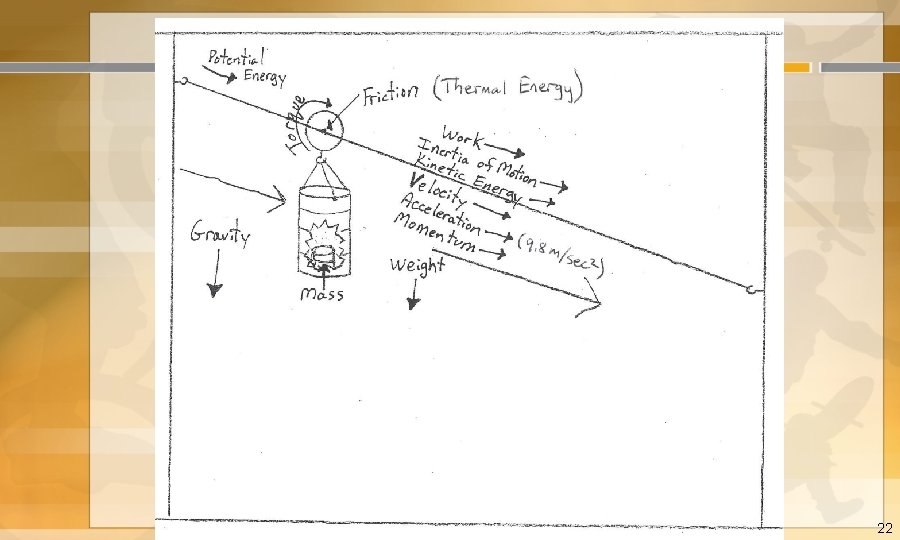 Potential
Energy
Friction (Thermal Energy)
Torque
Work
Inertia of Motion
Kinetic Energy
Velocity
Acceleration (9.8 m/sec²)
Momentum
Gravity
Weight
Mass
22